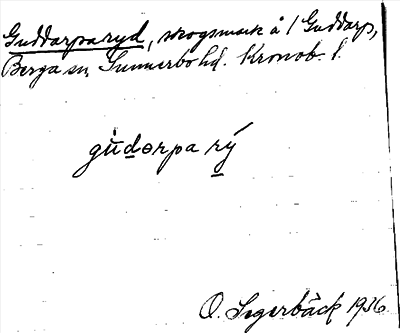 Guddarparyd, skogsmark å 1 Guddarp,
Berga sn, Sunnerbo hd. Kronob. l.
gu̇̀dərpa rý
O. Segerbäck 1936